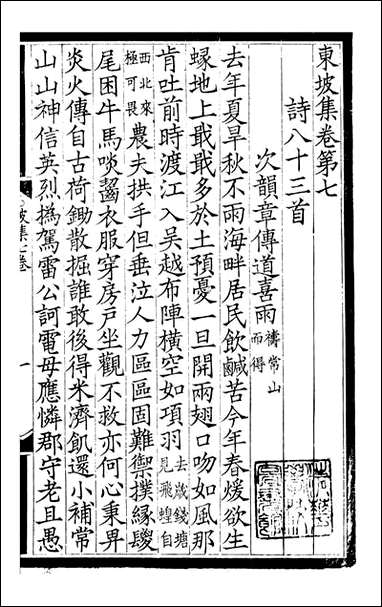 東坡集卷第七
詩八十三首
次韻章傳道喜雨禱常山而得
去年夏旱秋不雨海畔居民飲鹹苦今年春煖欲生
蝝地上戢戢多於土預憂一旦開兩翅口吻如風那
肯吐前時渡江入吳越布陣橫空如項羽去歲錢塘見飛蝗自
西北來極可畏農夫拱手但垂泣人力區區固難禦撲緣騣
尾困牛馬啖齧衣服穿房戶坐觀不救亦何心秉畀
炎火傳自古荷鋤散掘誰敢後得米濟飢還小補常
山山神信英烈撝駕雷公訶電母應憐郡守老且愚